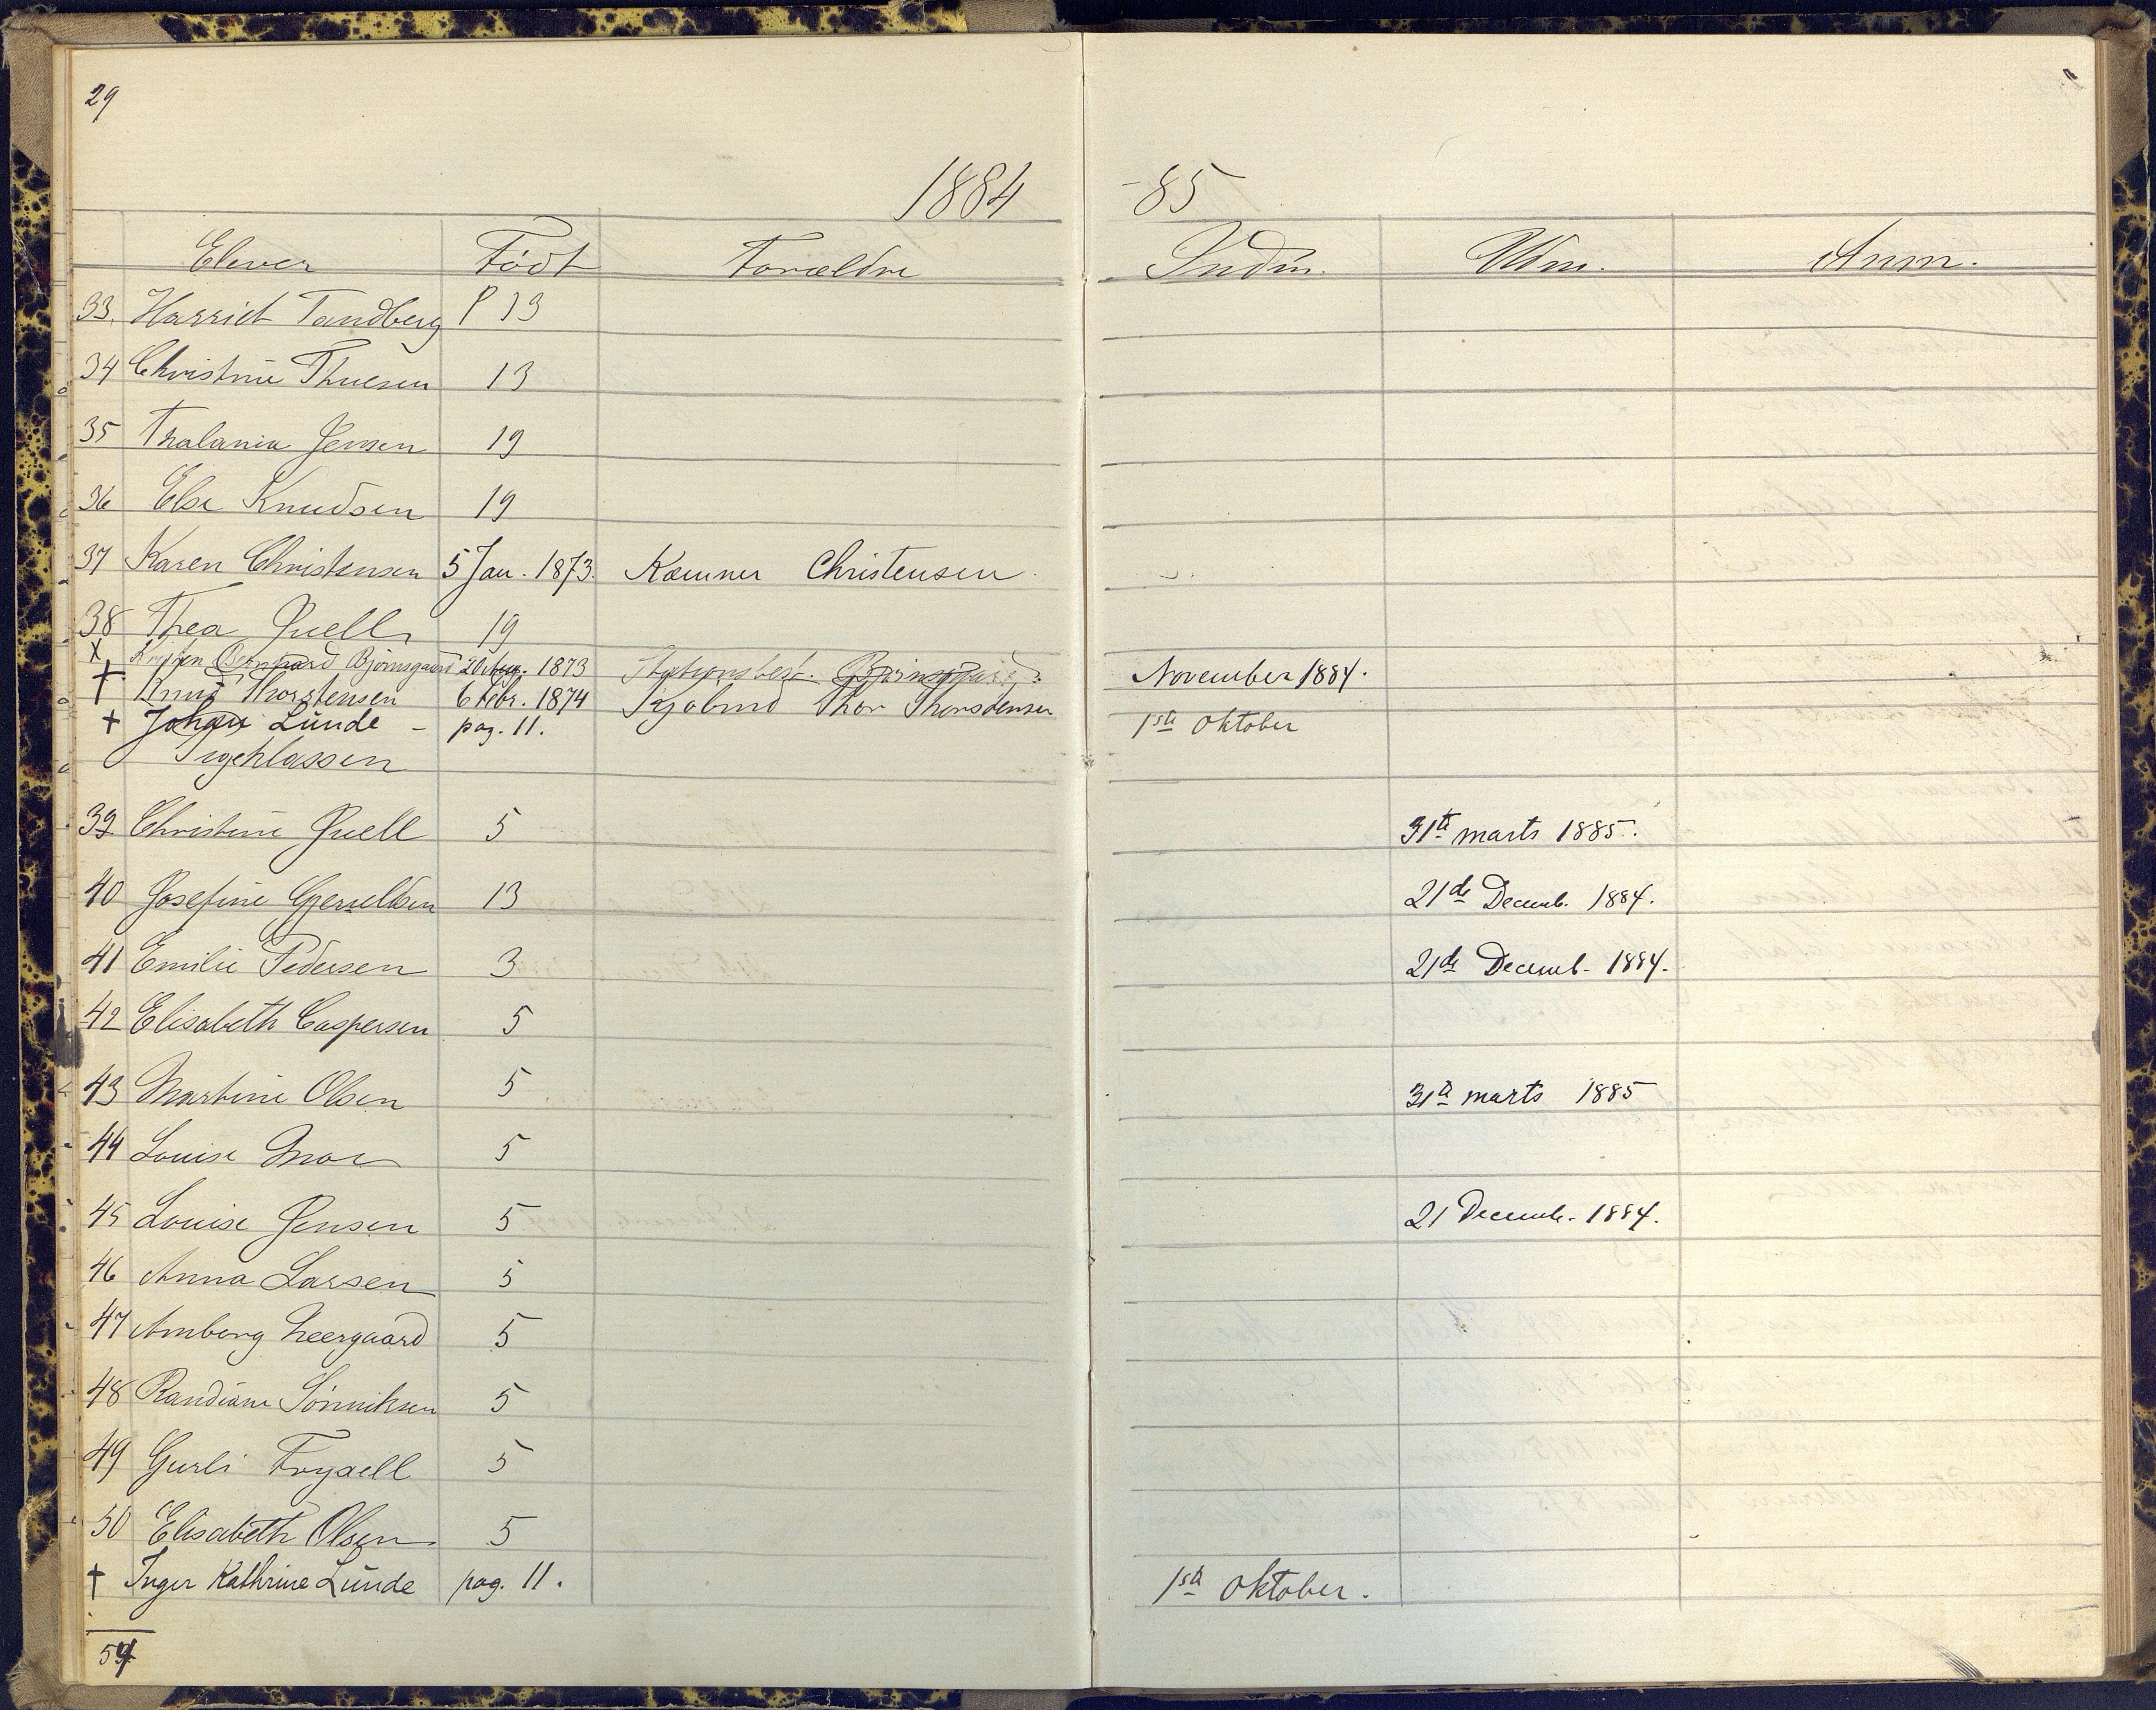 29
1884 -85
Elever Födt Forældre Indm. Udm. Anm.
33. Harriet Tandberg P 13
34 Christine Thuesen 13
35 Thalania Jensen 19
36 Else Knudsen 19
37 Karen Christensen 5 Jan. 1873. Kæmner Christensen
38 Thea Juell 19
x Bernhard Björnsgaard 20 Aug. 1873 Stationsbest. November 1884.
† Knud Thorstensen 6 Febr. 1874 Thor Thorstensen
† Johan Lunde - pag. 11. 1ste Oktober
Pigeklassen
39 Christine Juell 5 31te marts 1885.
40 Josefine 13 21de Decemb. 1884.
41 Emilie Pedersen 3 21de Decemb. 1884.
42 Elisabeth Caspersen 5
43 Martine Olsen 5 31te marts 1885
44 Louise Moe 5
45 Louise Jensen 5 21 Decemb. 1884.
46 Anna Larsen 5
47 Amborg Neergaard 5
48 Randiane Sönniksen 5
49 Gurli Fryxell 5
50 Elisabeth Olsen 5
† Inger Kathrine Lunde pag. 11. 1ste Oktober.
54